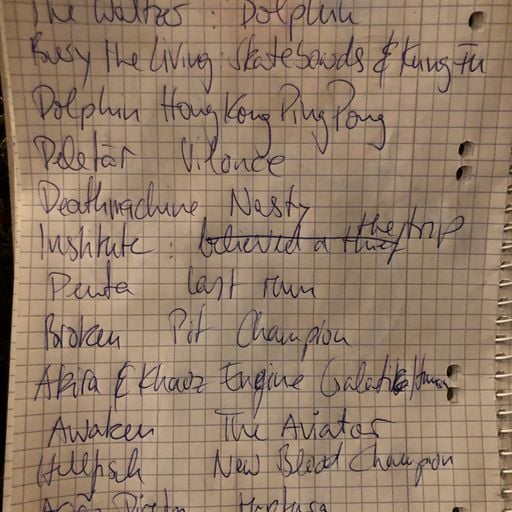 The Waltzer : Dolphin
Busy the Living : Skateboards & Kung Fu
Dolphin Hong Kong Ping Pong
Deletär Vilonce
Deathmachine Nasty
Institute : believed a thief the trip
Penta last run
Broken Pit Champion
Akira & Khaoz Engine
Awaken The Aviator
New Blood Champion